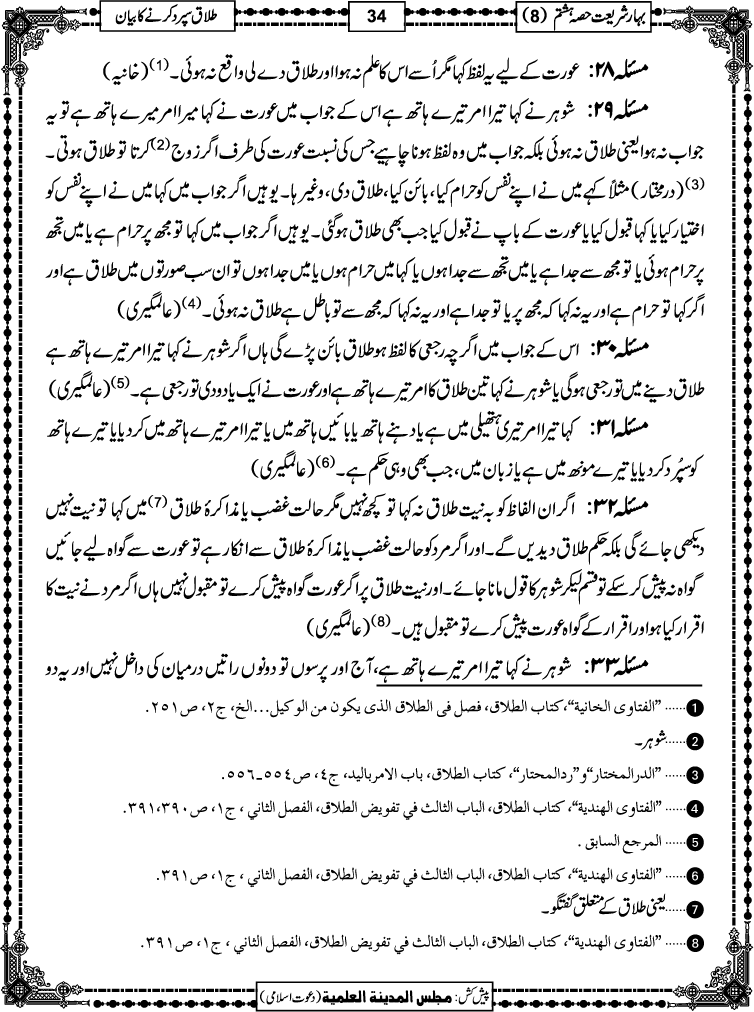 بہارِ شریعت حصہ ہشتم (8)
34
طلاق سپرد کرنے کا بیان
مسئلہ ۲۸: عورت کے لیے یہ لفظ کہا مگر اُسے اس کا علم نہ ہوا اور طلاق دے لی واقع نہ ہوئی۔(1) (خانیہ)
مسئلہ ۲۹: شوہر نے کہا تیرا امر تیرے ہاتھ ہے اس کے جواب میں عورت نے کہا میرا امر میرے ہاتھ ہے تو یہ
جواب نہ ہوا یعنی طلاق نہ ہوئی بلکہ جواب میں وہ لفظ ہونا چاہیے جس کی نسبت عورت کی طرف اگر زوج(2) کرتا تو طلاق ہوتی۔
(3) (درمختار) مثلاً کہے میں نے اپنے نفس کو حرام کیا، بائن کیا، طلاق دی، وغیرہا۔ یوہیں اگر جواب میں کہا میں نے اپنے نفس کو
اختیار کیا یا کہا قبول کیا یا عورت کے باپ نے قبول کیا جب بھی طلاق ہوگئی۔ یوہیں اگر جواب میں کہا تو مجھ پر حرام ہے یا میں تجھ
پر حرام ہوئی یا تو مجھ سے جدا ہے یا میں تجھ سے جدا ہوں یا کہا میں حرام ہوں یا میں جدا ہوں تو ان سب صورتوں میں طلاق ہے اور
اگر کہا تو حرام ہے اور یہ نہ کہا کہ مجھ پر یا تو جدا ہے اور یہ نہ کہا کہ مجھ سے تو باطل ہے طلاق نہ ہوئی۔(4) (عالمگیری)
مسئلہ ۳۰: اس کے جواب میں اگرچہ رجعی کا لفظ ہو طلاق بائن پڑے گی ہاں اگر شوہر نے کہا تیرا امر تیرے ہاتھ ہے
طلاق دینے میں تو رجعی ہوگی یا شوہر نے کہا تین طلاق کا امر تیرے ہاتھ ہے اور عورت نے ایک یا دو دی تو رجعی ہے۔(5) (عالمگیری)
مسئلہ ۳۱: کہا تیرا امر تیری ہتھیلی میں ہے یا دہنے ہاتھ یا بائیں ہاتھ میں یا تیرا امر تیرے ہاتھ میں کر دیا یا تیرے ہاتھ
کو سپُرد کر دیا یا تیرے مونھ میں ہے یا زبان میں، جب بھی وہی حکم ہے۔(6) (عالمگیری)
مسئلہ ۳۲: اگر ان الفاظ کو بہ نیت طلاق نہ کہا تو کچھ نہیں مگر حالت غضب یا مذاکرۂ طلاق(7) میں کہا تو نیت نہیں
دیکھی جائے گی بلکہ حکم طلاق دیدیں گے۔ اور اگر مرد کو حالت غضب یا مذاکرۂ طلاق سے انکار ہے تو عورت سے گواہ لیے جائیں
گواہ نہ پیش کر سکے تو قسم لیکر شوہر کا قول مانا جائے۔ اور نیت طلاق پر اگر عورت گواہ پیش کرے تو مقبول نہیں ہاں اگر مرد نے نیت کا
اقرار کیا ہو اور اقرار کے گواہ عورت پیش کرے تو مقبول ہیں۔(8) (عالمگیری)
مسئلہ ۳۳: شوہر نے کہا تیرا امر تیرے ہاتھ ہے، آج اور پرسوں تو دونوں راتیں درمیان کی داخل نہیں اور یہ دو
1 ...... "الفتاوی الخانیة"، کتاب الطلاق، فصل فی الطلاق الذی یکون من الوکیل...الخ، ج۲، ص۲۵۱.
2 ...... شوہر۔
3 ...... "الدرالمختار"و"ردالمحتار"، کتاب الطلاق، باب الامر بالید، ج٤، ص٥٥٤۔٥٥٦.
4 ...... "الفتاوی الهندیة"، کتاب الطلاق، الباب الثالث في تفویض الطلاق، الفصل الثاني، ج۱، ص۳۹۰،۳۹۱.
5 ...... المرجع السابق .
6 ...... "الفتاوی الهندیة"، کتاب الطلاق، الباب الثالث في تفویض الطلاق، الفصل الثاني ، ج۱، ص۳۹۱.
7 ...... یعنی طلاق کے متعلق گفتگو۔
8 ...... "الفتاوی الهندیة"، کتاب الطلاق، الباب الثالث في تفویض الطلاق، الفصل الثاني ، ج۱، ص۳۹۱.
پیش کش: مجلس المدینة العلمیة (دعوت اسلامی)